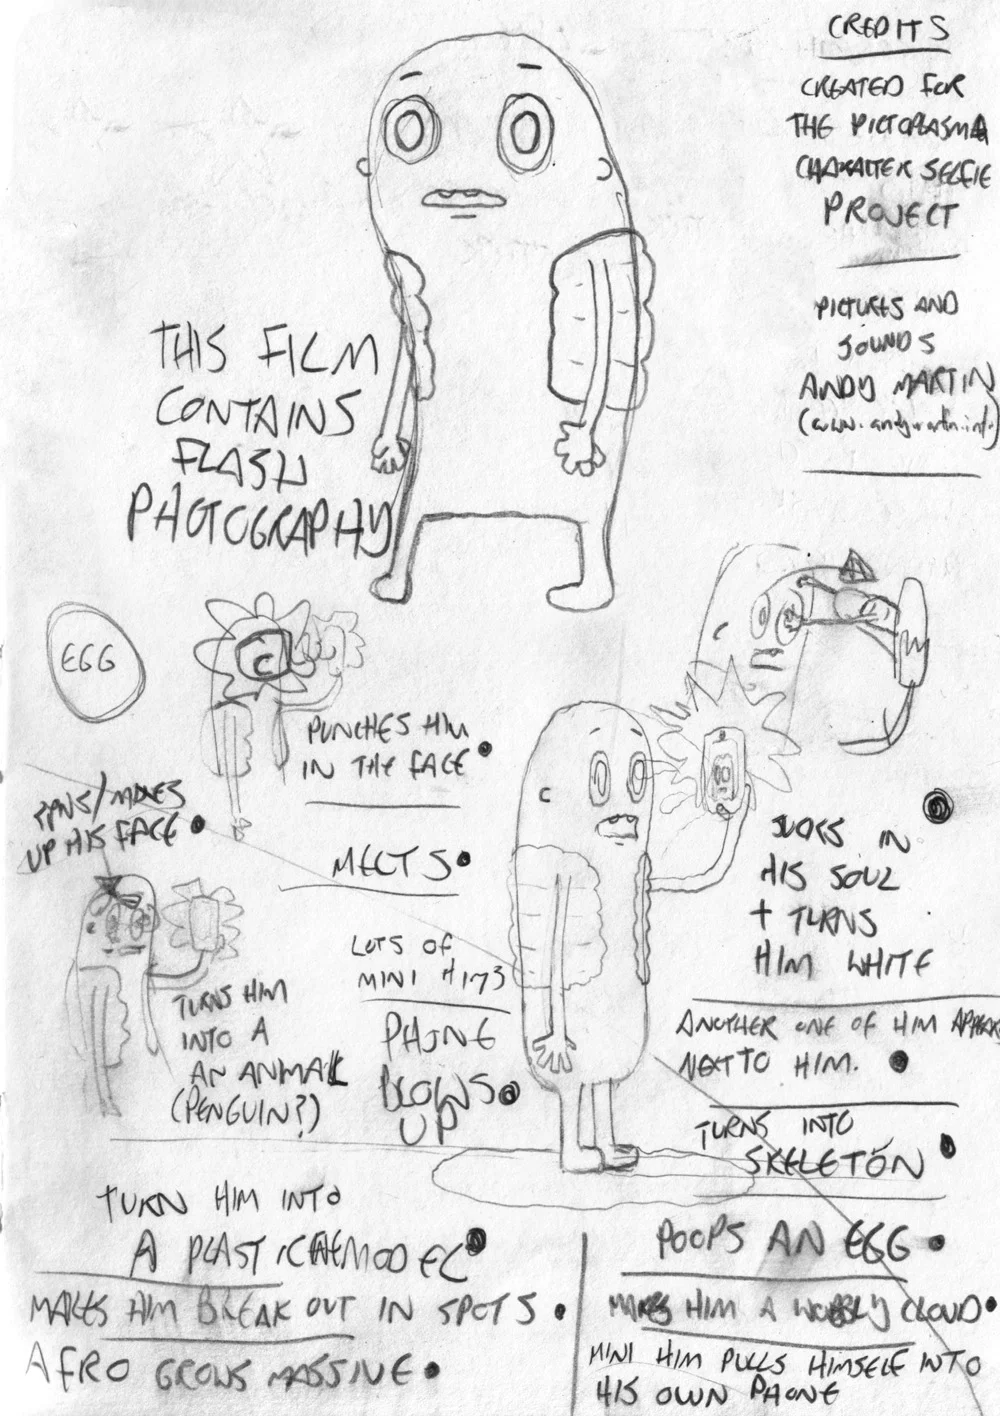 CREDITS
CREATED FOR
THE PICTOPLASMA
CHARACTER SELFIE
PROJECT
PICTURES AND
SOUNDS
ANDY MARTIN
THIS FILM
CONTAINS
FLASH
PHOTOGRAPHY
EGG
PUNCHES HIM
IN THE FACE
MAKES
UP HIS FACE
MELTS
LOTS OF
MINI HIMS
PHONE
BLOWS
UP
TURNS HIM
INTO A
AN ANIMAL
(PENGUIN?)
SUCKS IN
HIS SOUL
+ TURNS
HIM WHITE
ANOTHER ONE OF HIM APPEARS
NEXT TO HIM.
TURNS INTO
SKELETON
TURN HIM INTO
A PLASTICINE MODEL
MAKES HIM BREAK OUT IN SPOTS
AFRO GROWS MASSIVE
POOPS AN EGG
MAKES HIM A WOBBLY CLOUD
MINI HIM PULLS HIMSELF INTO
HIS OWN PHONE